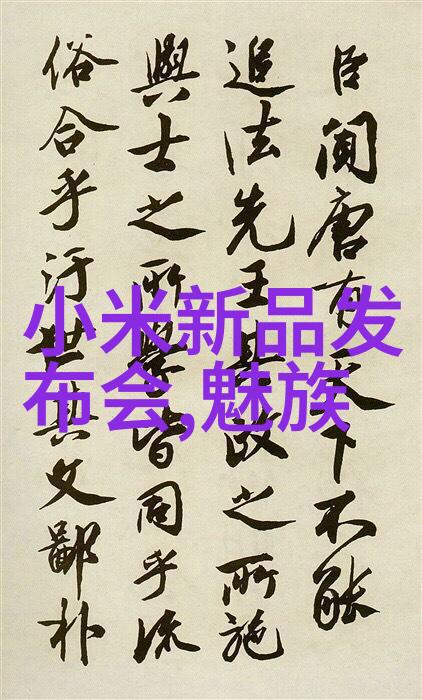 小米新品发
布会,魅族
臣聞唐有天下不能
追法先王政之所施
與士之所學皆同乎流
俗合乎汙世其文鄙朴